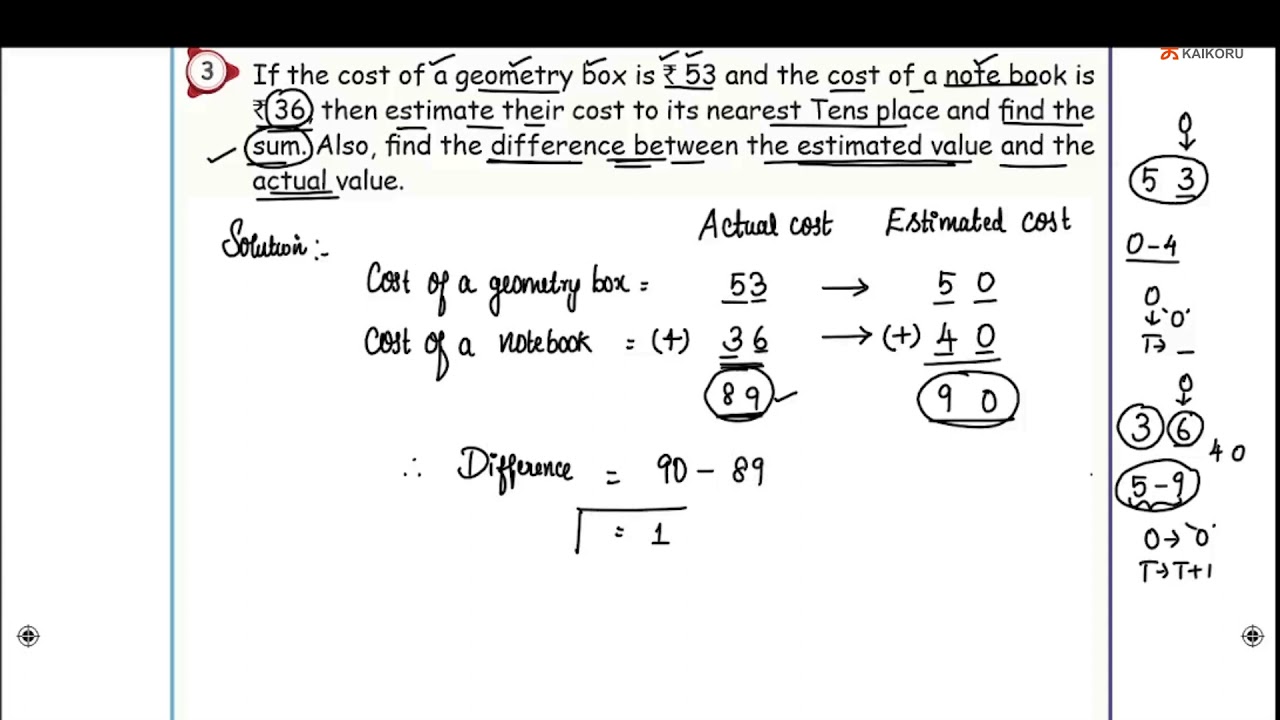 KAIKORU
3 If the cost of a geometry box is ₹ 53 and the cost of a note book is
₹ 36, then estimate their cost to its nearest Tens place and find the
sum. Also, find the difference between the estimated value and the
actual value.
Solution :-
Actual cost Estimated cost
Cost of a geometry box = 53 → 50
Cost of a notebook = (+) 36 → (+) 40
89 90
∴ Difference = 90 - 89
= 1
0
↓
53
0-4
0
↓ '0'
T→ _
0
↓
36
40
5-9
0→ '0'
T→T+1